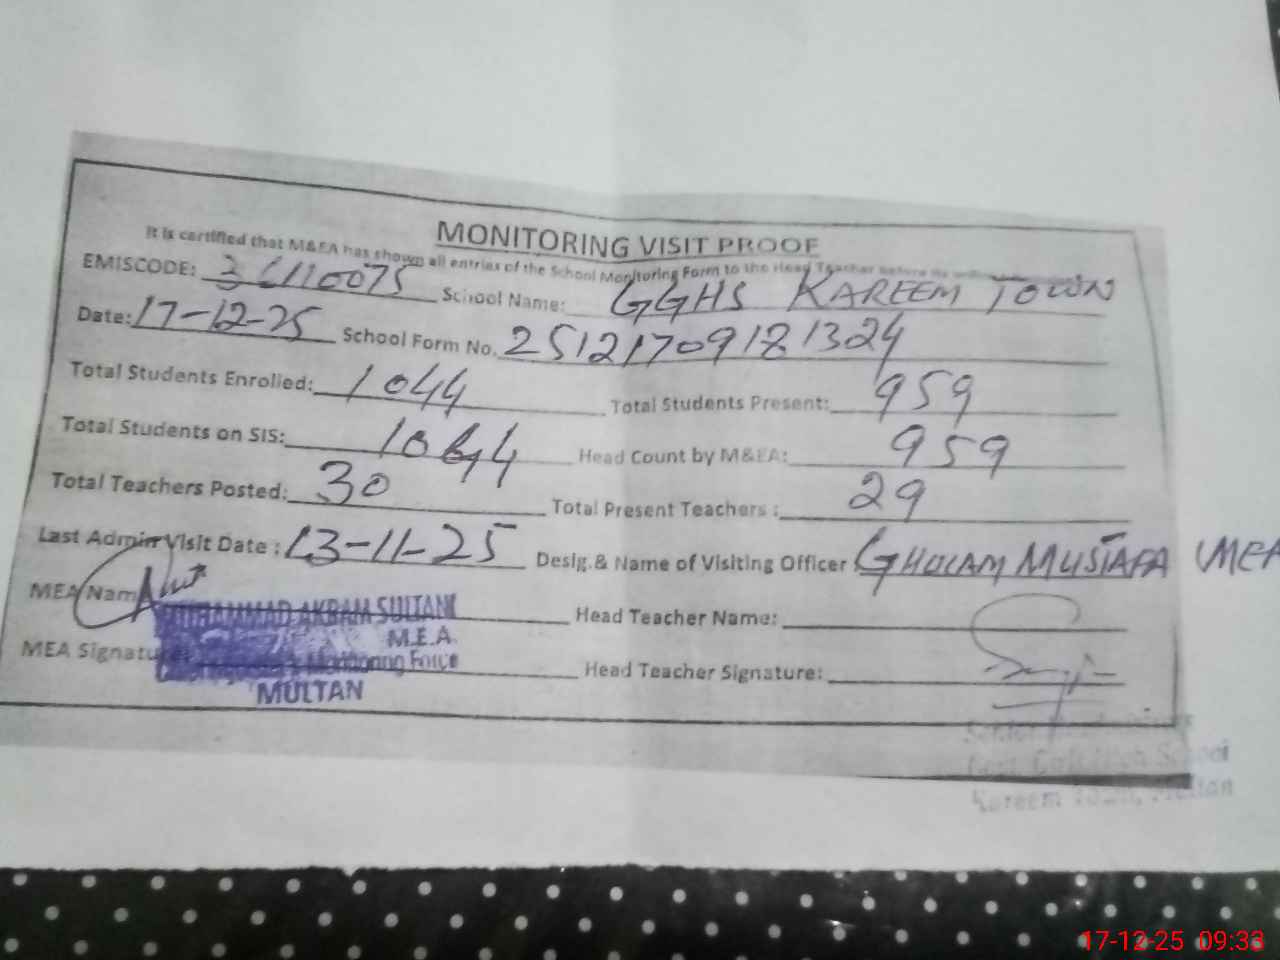 MONITORING VISIT PROOF
It is certified that M&EA has shown all entries of the School Monitoring Form to the Head Teacher before its
EMISCODE: 36110075 School Name: GGHS KAREEM TOWN
Date: 17-12-25 School Form No. 251217091281324
Total Students Enrolled: 1044 Total Students Present: 959
Total Students on SIS: 1044 Head Count by M&EA: 959
Total Teachers Posted: 30 Total Present Teachers : 29
Last Admin Visit Date : 13-11-25 Desig.& Name of Visiting Officer GHULAM MUSTAFA (MEA
MEA Nam Head Teacher Name:
MUHAMMAD AKRAM SULTANI
M.E.A.
MEA Signatu Monitoring Force Head Teacher Signature:
MULTAN
Senior Headmistress
Govt. Girls High School
Kareem Town, Multan
17-12-25 09:33